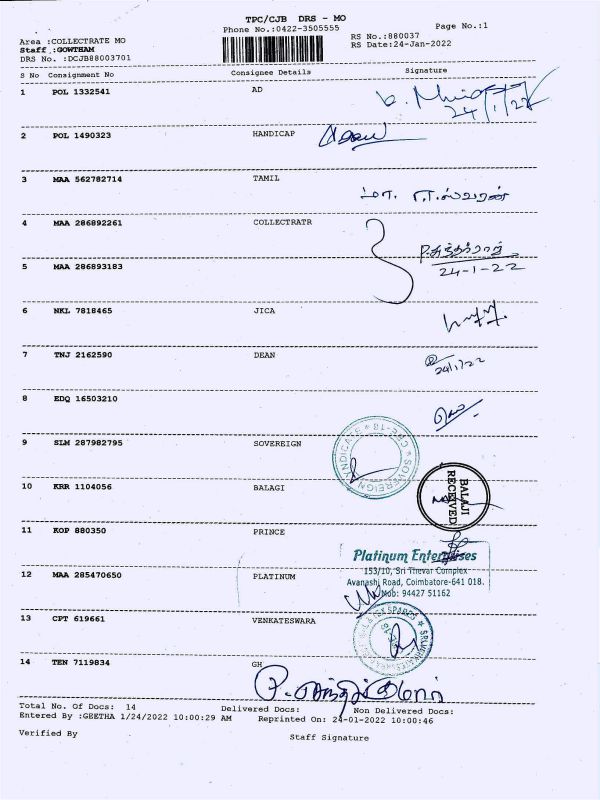 TPC/CJB DRS - MO
Phone No.:0422-3505555
Page No.:1
Area :COLLECTRATE MO
Staff :GOWTHAM
DRS No. :DCJB88003701
RS No.:880037
RS Date:24-Jan-2022
S No Consignment No Consignee Details Signature
1 POL 1332541 AD
24/1/22
2 POL 1490323 HANDICAP
3 MAA 562782714 TAMIL
4 MAA 286892261 COLLECTRATR
5 MAA 286893183
24-1-22
6 NKL 7818465 JICA
7 TNJ 2162590 DEAN
24/1/22
8 EDQ 16503210
9 SLM 287982795 SOVEREIGN
SOVEREIGN SYNDICATE CBE-18
10 KRR 1104056 BALAGI
BALAJI
RECEIVED
11 KOP 880350 PRINCE
Platinum Enterprises
153/10, Sri Thevar Complex
Avanashi Road, Coimbatore-641 018.
Mob: 94427 51162
12 MAA 285470650 PLATINUM
13 CPT 619661 VENKATESWARA
14 TEN 7119834 GH
Total No. Of Docs: 14 Delivered Docs: Non Delivered Docs:
Entered By :GEETHA 1/24/2022 10:00:29 AM Reprinted On: 24-01-2022 10:00:46
Verified By Staff Signature